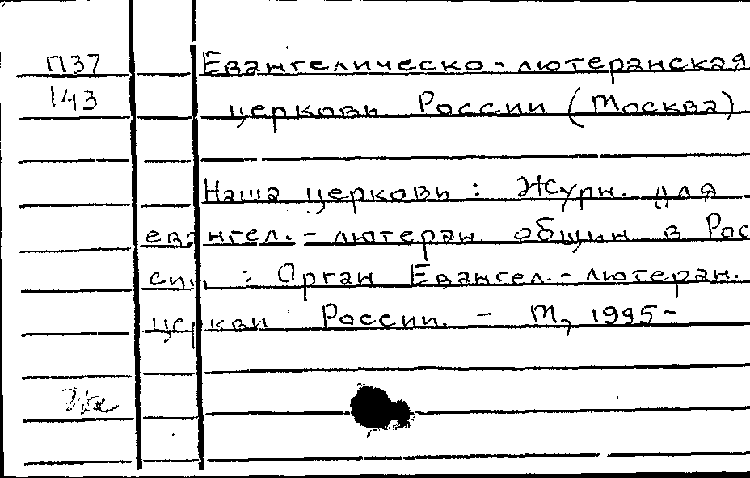 П37 Евангелическо-лютеранская
143 церковь России (Москва)
Наша церковь : Журн. для
евангел.-лютеран общин в Рос
сии : Орган Евангел.-лютеран.
церкви России. - М, 1995-